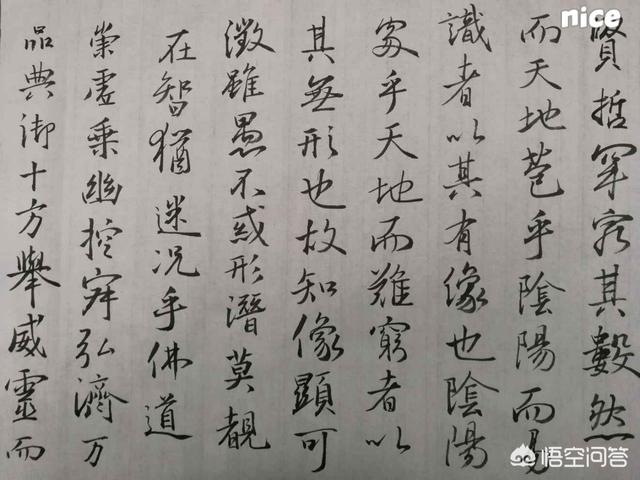 賢哲罕窮其數然
而天地苞乎陰陽而易
識者以其有像也陰陽
處乎天地而難窮者以
其無形也故知像顯可
徵雖愚不惑形潛莫覩
在智猶迷況乎佛道
崇虛乘幽控寂弘濟万
品典御十方舉威靈而
nice
悟空问答